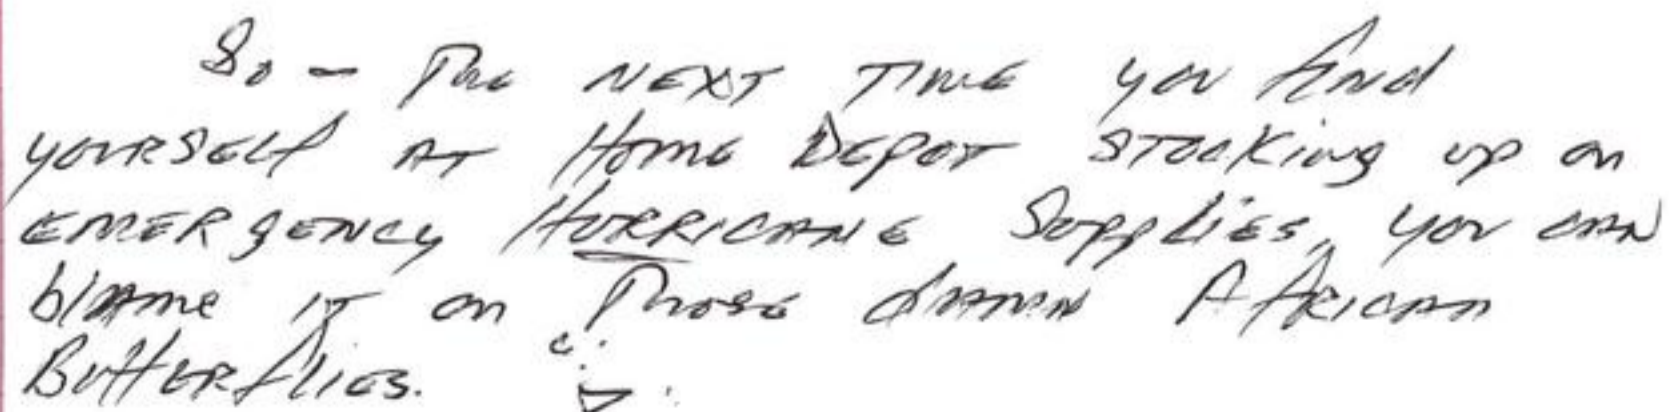 So - The NEXT TIME you find
YOURSELF AT HOME DEPOT STOCKING up on
EMERGENCY HURRICANE Supplies, you CAN
blame IT on Those damn AFRICAN
Butterflies.